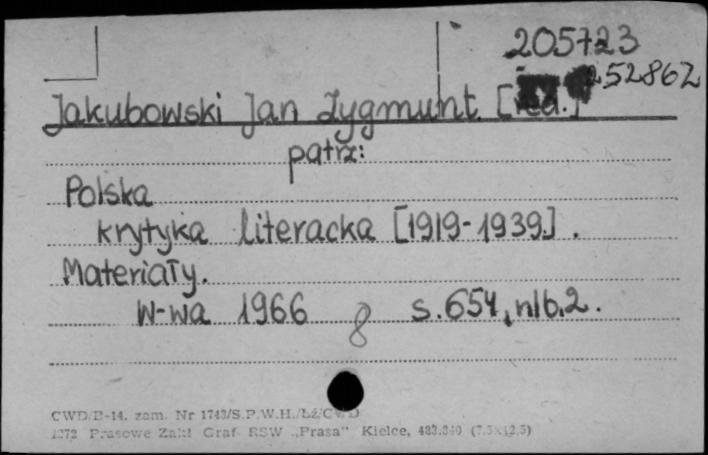 205723
252862
Jakubowski Jan Zygmunt [red.]
patrz:
Polska
krytyka literacka [1919-1939.] .
Materiały.
W-wa 1966 8 s. 654, nlb. 2.
CWD/B-14. zam. Nr 1743/S.P.W.H./Łż/CWD
Prasowe Zakł Graf RSW „Prasa" Kielce, (7.5x12,5)